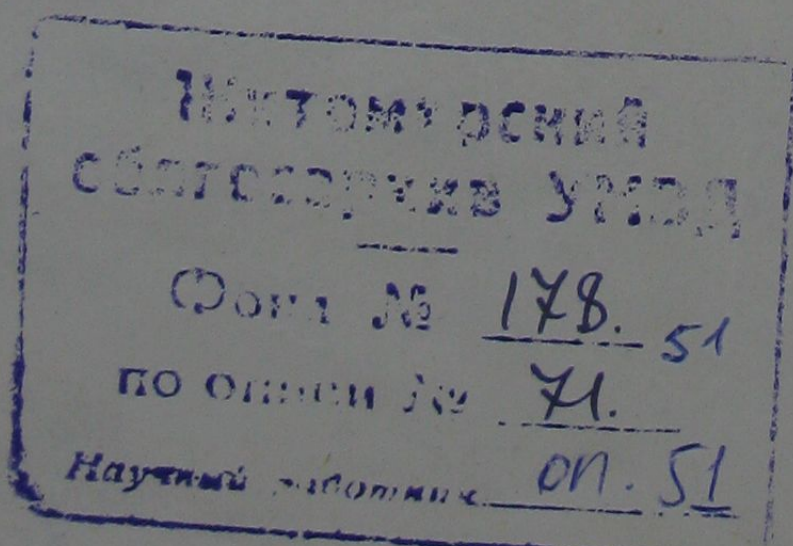 Житомирский
облгосархив УМВД
Фонд № 178. 51
по описи № 71.
Научный работник оп. 51